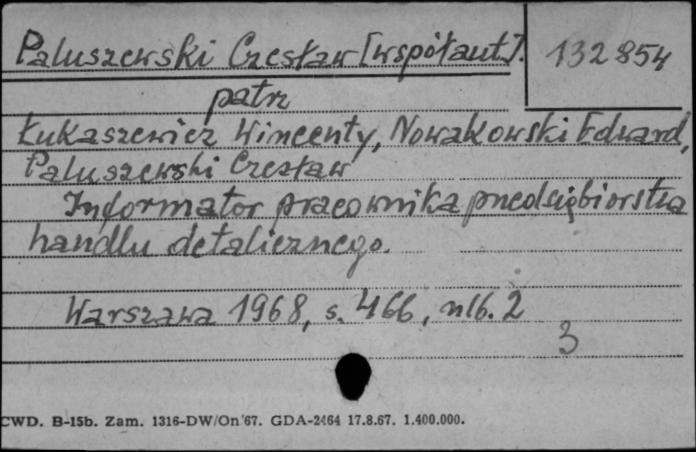 Paluszewski Czesław [współaut.]. 132854
patrz
Łukaszewicz Wincenty, Nowakowski Edward,
Paluszewski Czesław
Informator pracownika przedsiębiorstwa
handlu detalicznego.
Warszawa 1968, s. 466, nlb. 2
3
CWD. B-15b. Zam. 1316-DW/On'67. GDA-2464 17.8.67. 1.400.000.